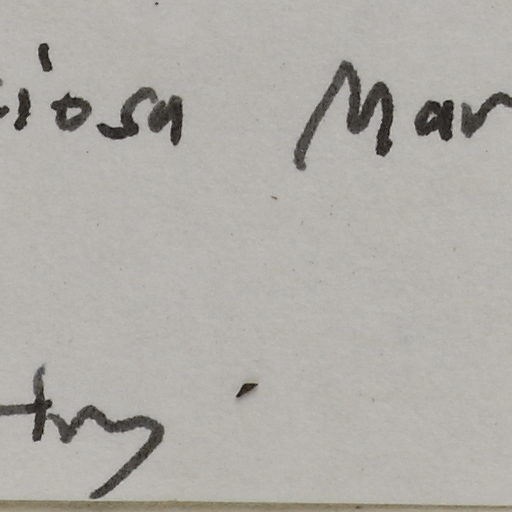 iosa Mar
try.